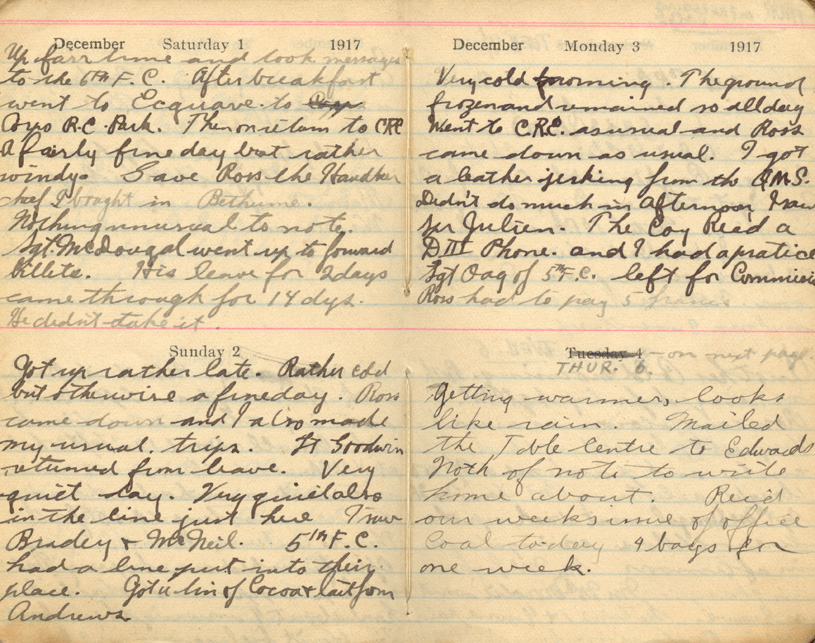 December Saturday 1 1917
Up farr time and took messages
to the 6th F.C. After breakfast
went to Ecquave to
Corps R.C. Park. Then on return to CRE
A fairly fine day but rather
windy. Gave Ross the Handker
cheif I bought in Bethune.
Nothing unusual to note.
Sgt. McDougal went up to forward
billets. His leave for 2 days
came through for 14 dys.
He didn't take it.
Sunday 2
Got up rather late. Rather cold
but otherwire a fine day. Ross
came down and I also made
my usual trips. Lt Goodwin
returned from leave. Very
quiet day. Very quiet also
in the line just here I saw
Bradey & McNeil. 5th F.C.
had a line put into their
place. Got a tin of Cocoa & last from
Andrews
December Monday 3 1917
Very cold morning. The ground
frozen and remained so all day
Went to C.R.E. as usual and Ross
came down as usual. I got
a leather jerking from the Q.M.S.
Didn't do much in afternoon, I saw
Spr Julien. The Coy Rec'd a
D III Phone. and I had a pratice
Sgt Oag of 5th F.C. left for Commissi
Ross had to pay 5 francs
Tuesday 4 - on next page.
THUR. 6.
Getting warmer, looks
like rain. Mailed
the Table Centre to Edwards
Noth of note to write
home about. Rec'd
our weeks issue of office
Coal to-day 4 bags for
one week.